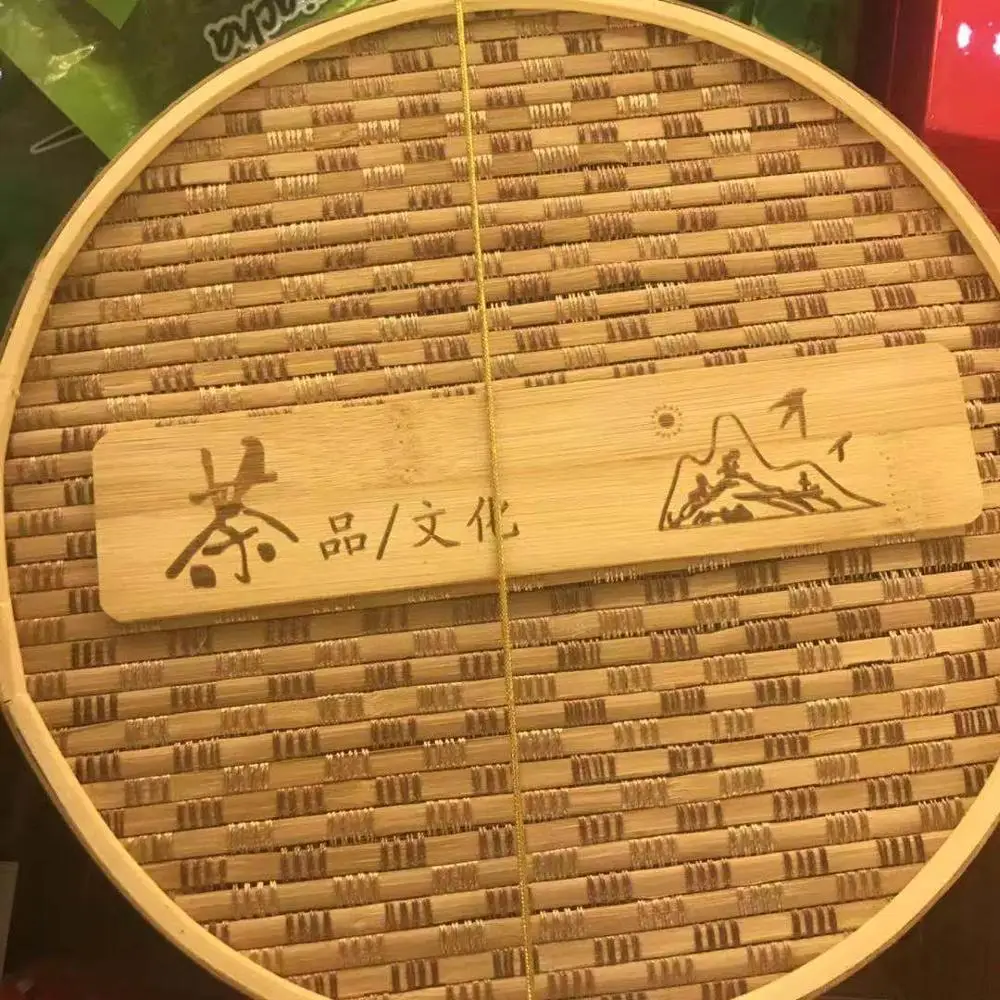 acha
茶品/文化